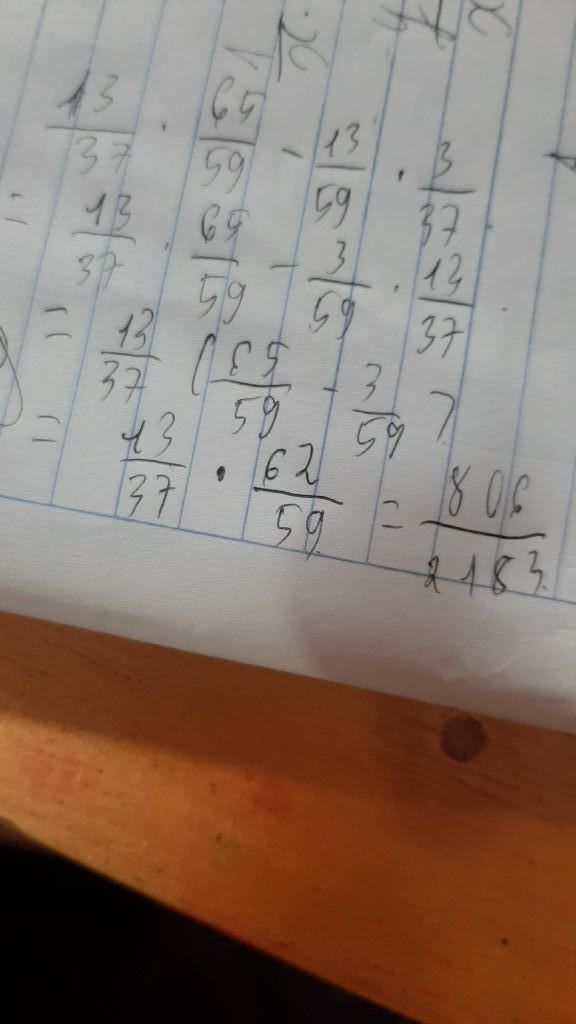 13/37 · 65/59 - 13/59 · 3/37
= 13/37 · 65/59 - 3/59 · 13/37
= 13/37 (65/59 - 3/59)
= 13/37 · 62/59 = 806/2183